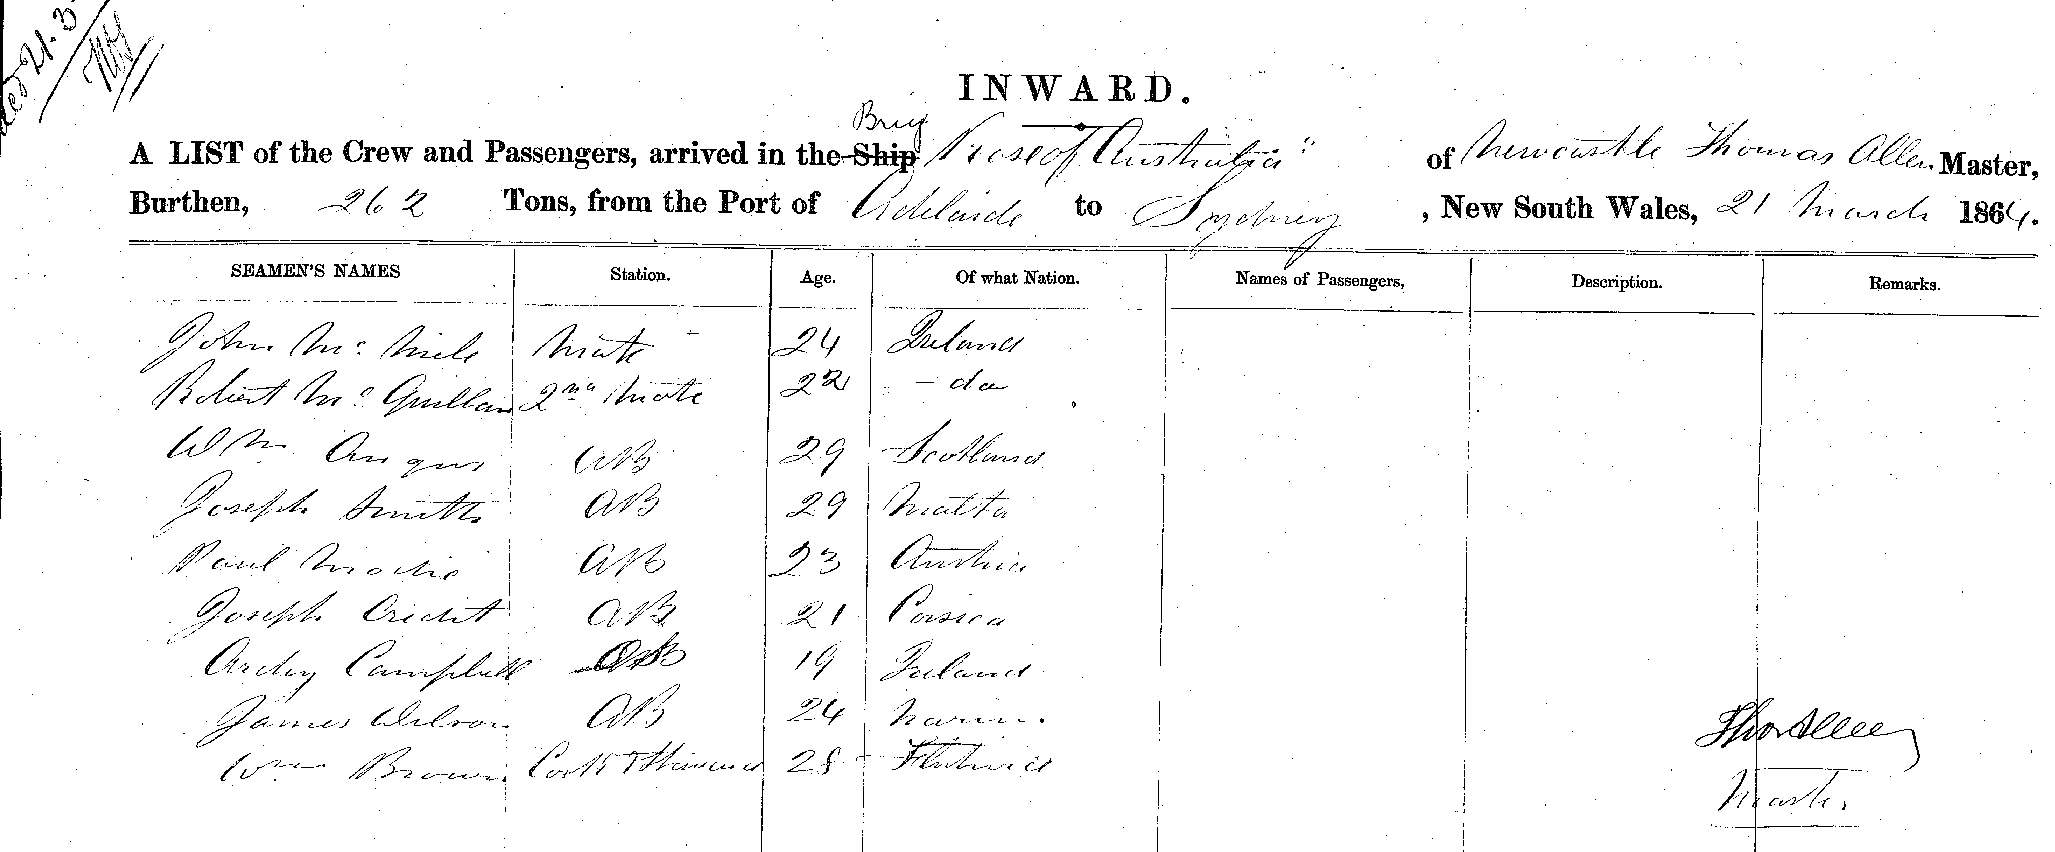 21.3
INWARD.
Brig
A LIST of the Crew and Passengers, arrived in the Ship Rose of Australia" of Newcastle Thomas Allen Master,
Burthen, 262 Tons, from the Port of Adelaide to Sydney, New South Wales, 21 March 1864.
SEAMEN'S NAMES Station. Age. Of what Nation. Names of Passengers, Description. Remarks.
John Mc Nile Mate 24 Ireland
Robert Mc Quillan 2nd Mate 22 - do
Wm Angus AB 29 Scotland
Joseph Smith AB 29 Malta
Paul AB 23 Austria
Joseph AB 21 Corsica
Campbell AB 19 Ireland
James Wilson AB 24
Wm Brown Cook & Steward 28
Thos Allen
Master